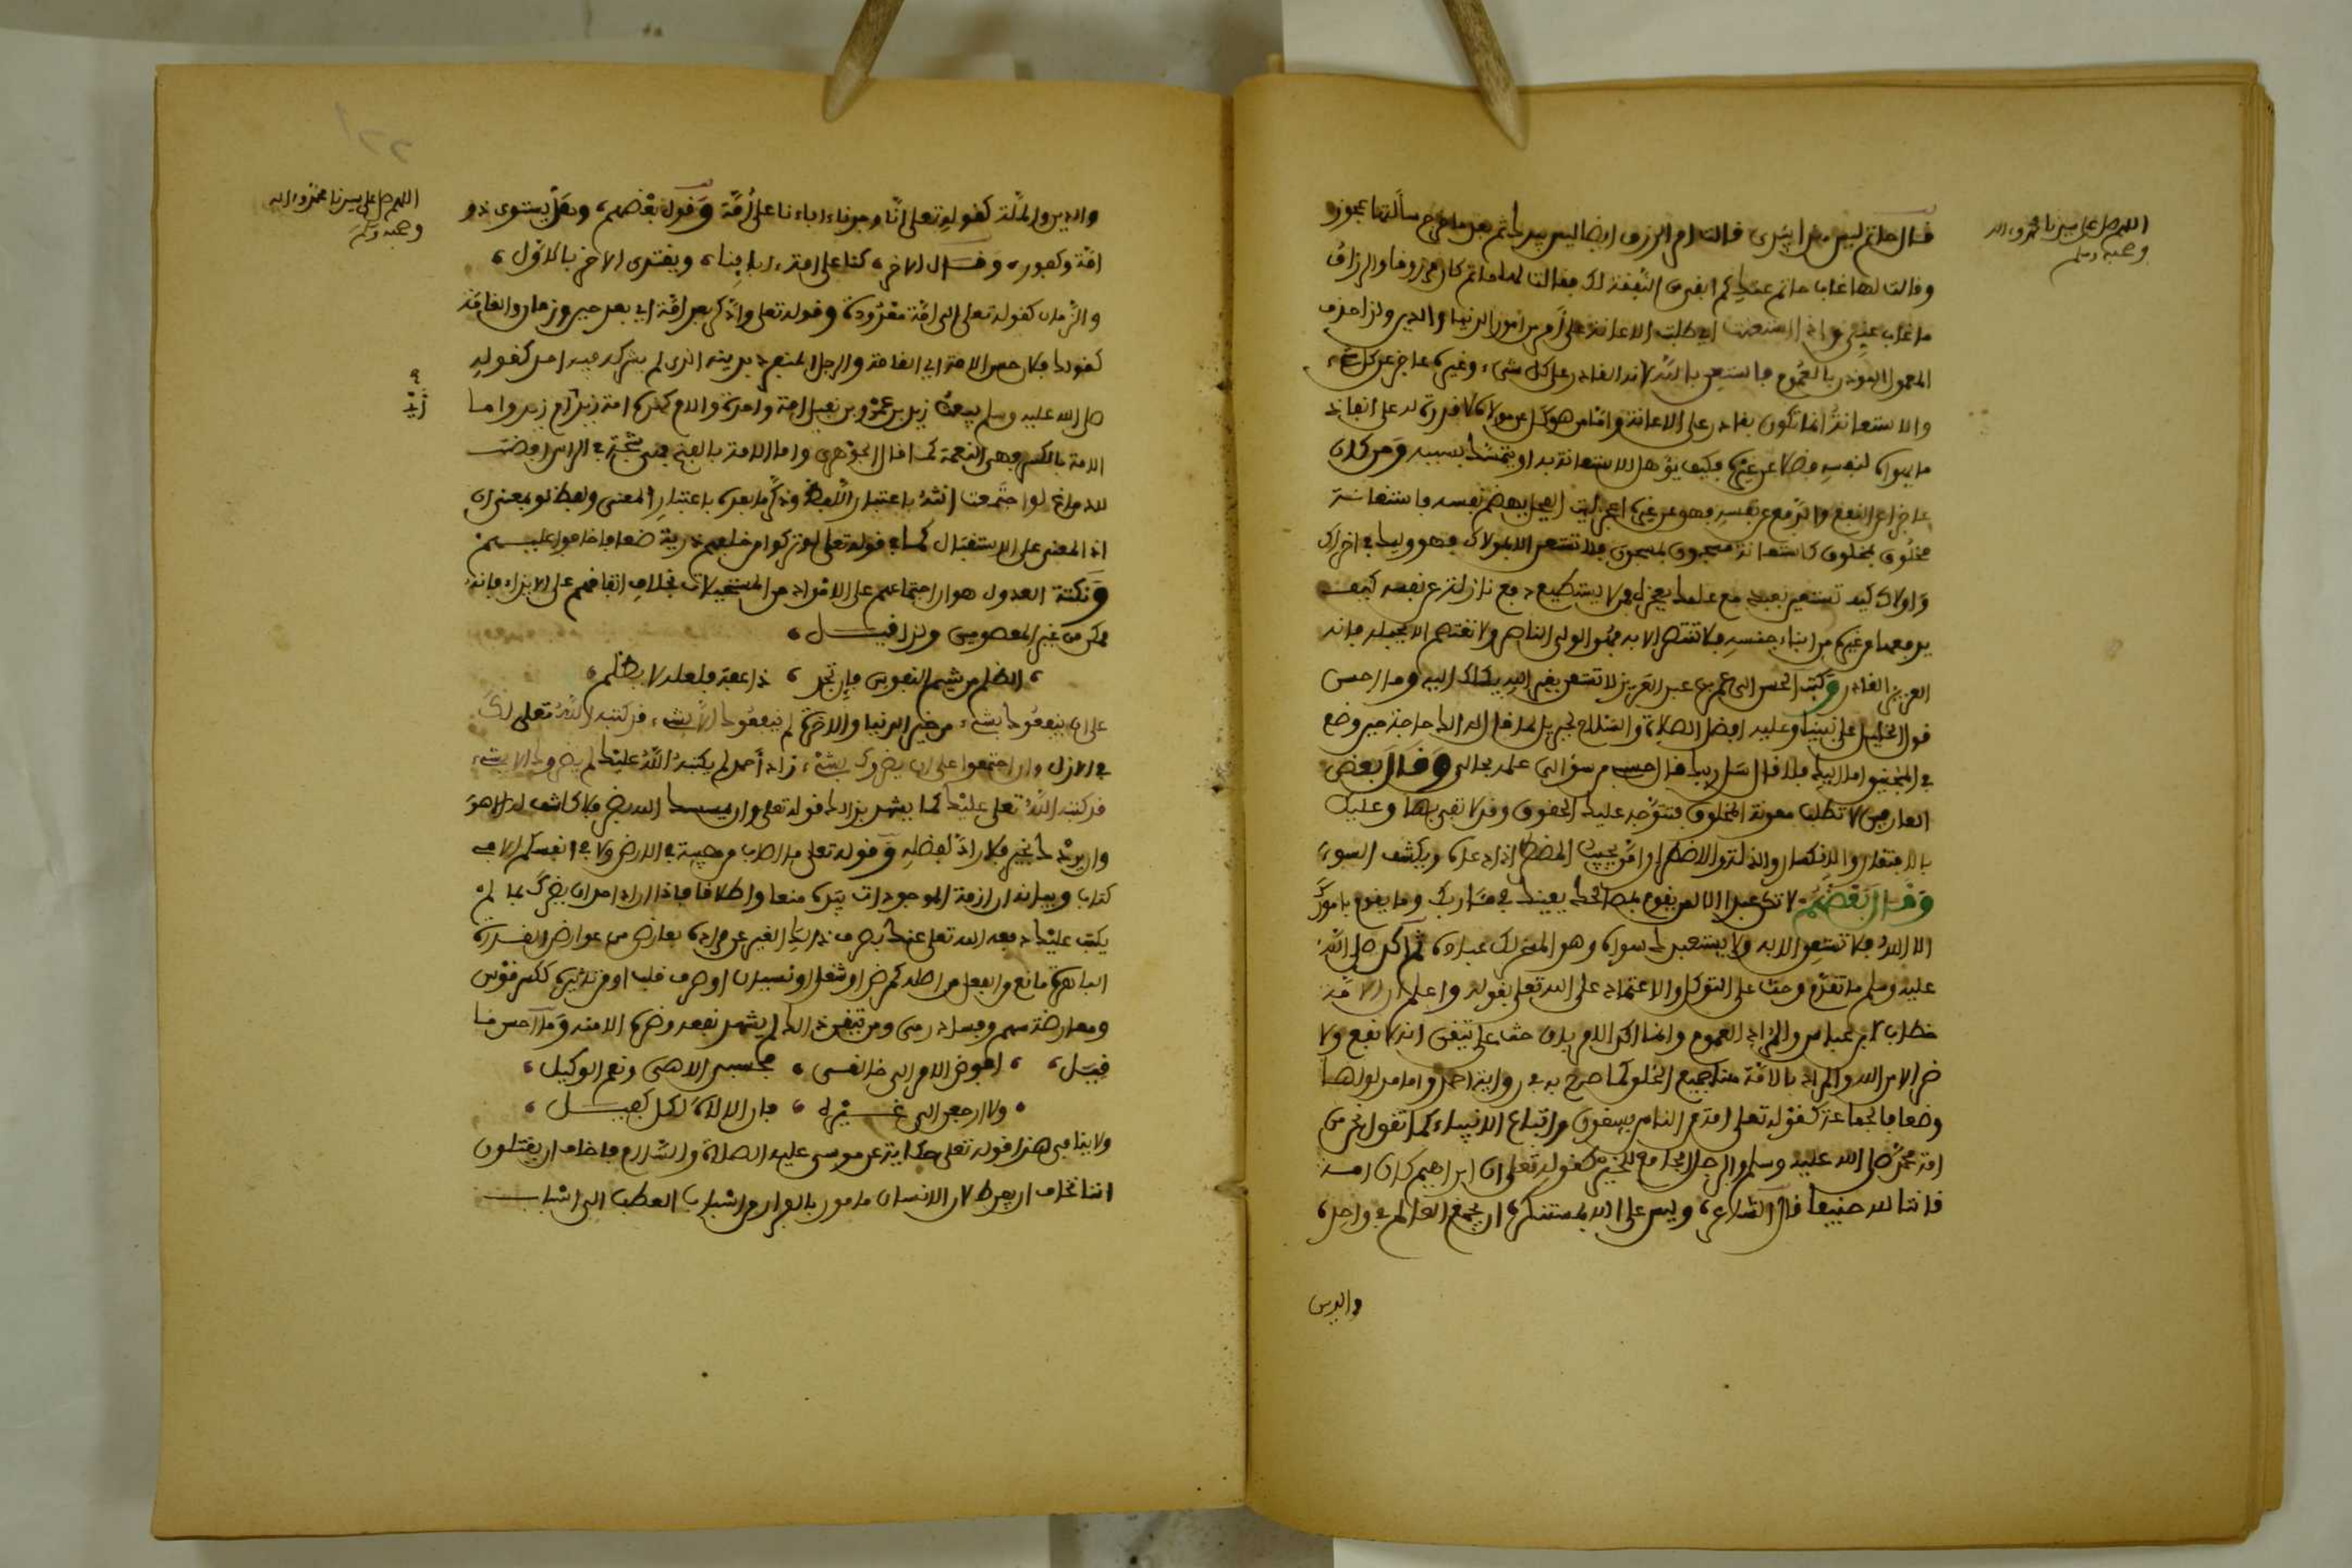 اللهم صل على سيدنا محمد وءاله
وصحبه وسلم
قال حاتم ليس هذا بيدى قالت ام الرزق ايضا ليس بيدك ثم بعد ما خرج سألتها عجوز
وقالت لها غاب حاتم عندكم ابقى النفقة لك فقالت لها حاتم كان مرزوقا والرزاق
ما غاب عنى واذا استعنت اي طلبت الاعانة على امر من امور الدنيا والدين ولذا حذف
المعمول الموذن بالعموم فاستعن بالله لانه القادر على كل شىء وغيره عاجز عن كل شىء
والاستعانة انما تكون بقادر على الاعانة واما من هو كل على مولاه لا قدرة له على انفاذ
ما يهواه لنفسه فضلا عن غيره فكيف يؤهل للاستعانة به او يتمسك بسببه ومن كان
عاجزا عن النفع والدفع عن نفسه فهو عن غيره اعجز ليت الفحل يهضم نفسه فاستغاثة
مخلوق بمخلوق كاستغاثة مسجون بمسجون فلا تستعن الا بمولاك فهو وليك في اخراك
واولاك كيف تستعين بعبد مع علمك بعجزه فمن لا يستطيع دفع نازلة عن نفسه كيف
يدفعها عن غيره من ابناء جنسه فلا تنتصر الا به فهو الولى الناصر ولا تعتصم الا بحبله فانه
العزيز القادر وكتب الحسن الى عمر بن عبد العزيز لا تستعن بغير الله يكلك اليه وما احسن
قول الخليل على نبينا وعليه افضل الصلاة والسلام لجبريل لما قال له الك حاجة حين وضع
في المنجنيق اما اليك فلا قال سل ربك قال حسبى من سؤالى علمه بحالى وقال بعض
العارفين لا تطلب معونة المخلوق فتتوجه عليك الحقوق وقد لا تفى بها وعليك
بالافتقار والانكسار والذلة والاضطرار امن يجيب المضطر اذا دعاه ويكشف السوء
وقال بعضهم لا تكن عبدا الا لمن يقوم بمصالحك يعينك في مئاربك وما يقوم بامورك
الا الله فلا تستعن الا به ولا يستعبدك سواه وهو المعز لك عباده ثم اكد صلى الله
عليه وسلم ما تقدم وحث على التوكل والاعتماد على الله تعلى بقوله واعلم ان الامة
خطاب لابن عباس والمراد العموم وانما اكد الامر بان حث على تيقن انه لا نفع ولا
ضر الا من الله والمراد بالامة هنا جميع الخلق كما صرح به في رواية احمد واما مدلولها
وضعا فالجماعة كقوله تعلى امة من الناس يسقون واتباع الانبياء كما تقول نحن من
امة محمد صلى الله عليه وسلم والرجل الجامع للخير كقوله تعلى ان ابراهيم كان امة
قانتا لله حنيفا قال الشاعر، وليس على الله بمستنكر ان يجمع العالم في واحد،
والدين
اللهم صل على سيدنا محمد وءاله
وصحبه وسلم
والدين والملة كقوله تعلى انا وجدنا ءاباءنا على امة وقول بعضهم، وهل يستوى ذو
امة وكفور، وقال الاخر، كنا على امة ءابائنا، ويقتدى الاخر بالاول،
والزمان كقوله تعلى الى امة معدودة وقوله تعلى وادكر بعد امة اي بعد حين وزمان والقامة
كقولك فلان حسن الامة اي القامة والرجل المنفرد بدينه الذى لم يشركه فيه احد كقوله
صلى الله عليه وسلم يبعث زيد بن عمرو بن نفيل امة وحده والام كهذه امة زيد ام زيد واما
زيد
الامة بالكسر فهى النعمة كما قال الجوهرى واما الامة بالفتح فهى شجة في الراس وضمت
لا م اغ لو اجتمعت انث باعتبار اللفظ وذكر ما بعده باعتبار المعنى ولفظ لو بمعنى ان
اذ المعنى على الاستقبال كما في قوله تعلى لو تركوا من خلفهم ذرية ضعافا خافوا عليهم
ونكتة العدول هو ان اجتماعهم على الامداد من المستحيلات بخلاف اتفاقهم على الايذاء فانه
ممكن من غير المعصومين ولذا قيل،
، الظلم من شيم النفوس فإن تجد ، ذا عفة فلعلة لا يظلم،
على ان ينفعوك بشىء من خير الدنيا والاخرة لم ينفعوك الا بشىء قد كتبه الله تعلى لك
في الازل وان اجتمعوا على ان يضروك بشىء زاد أحمد لم يكتبه الله عليك لم يضروك الا بشىء
قد كتبه الله تعلى عليك كما يشهد بذلك قوله تعلى وان يمسسك الله بضر فلا كاشف له الا هو
وان يردك بخير فلا راد لفضله وقوله تعلى ما اصاب من مصيبة في الارض ولا في انفسكم الا في
كتاب وبيانه ان ازمة الموجودات بيده منعا واطلاقا فاذا اراد احد ان يضرك بما لم
يكتب عليك دفعه الله تعلى عنك بصرف ذلك الغير عن مراده بعارض من عوارض القدرة
الباهرة مانع من الفعل من اصله كمرض او شغل او نسيان او صرف قلب او من تاثيره ككسر قوس
ومعارضة سهم وفساد رمى ومن تيقن ذلك لم يشهد نفعه وضره الا منه وما احسن ما
قيل، ، افوض الامر الى خالقى ، فحسبى الاهى ونعم الوكيل،
، ولا ارجعن الى غيره ، فان الاله لكل كفيل،
ولا ينافى هذا قوله تعلى حكاية عن موسى عليه الصلاة والسلام فاخاف ان يقتلون
اننا نخاف ان يفرط لان الانسان مامور بالفرار من اسباب العطب الى اسباب